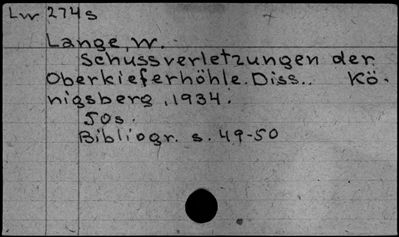 Lw 274s
Lange, W.
Schussverletzungen der
Oberkieferhöhle. Diss.. Kö-
nigsberg, 1934.
50s.
Bibliogr. s. 49-50